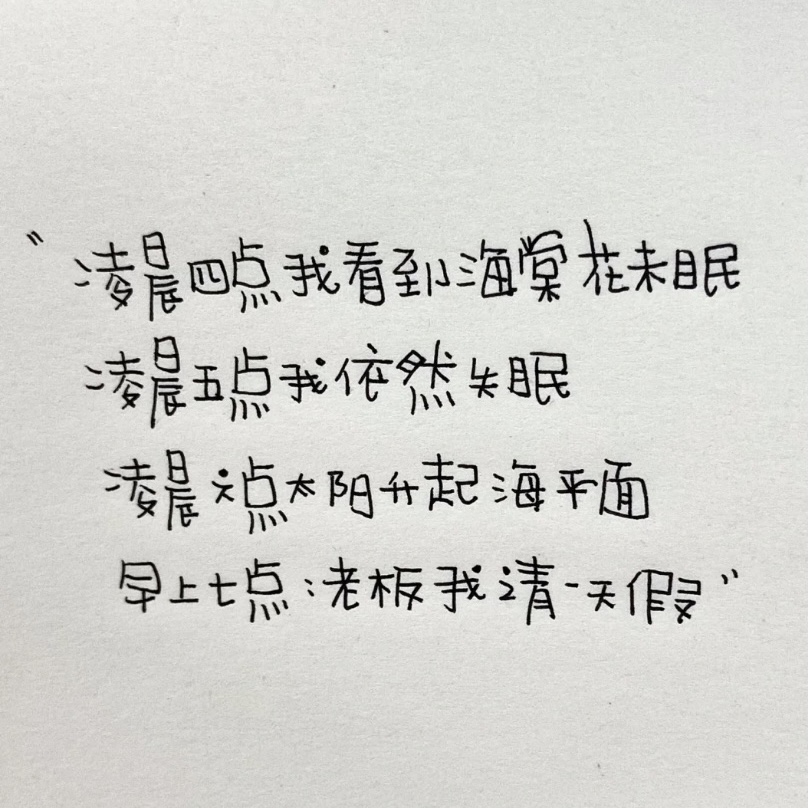 "凌晨四点我看到海棠花未眠
凌晨五点我依然失眠
凌晨六点太阳升起海平面
早上七点:老板我请一天假"